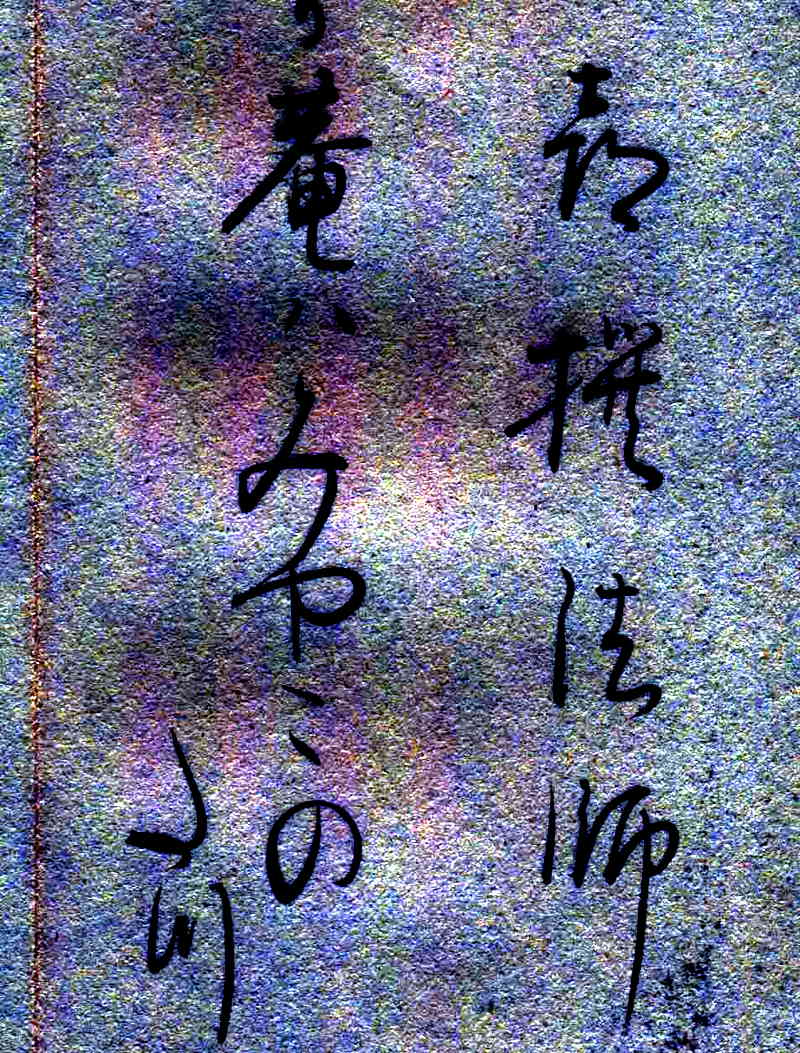 喜撰法師
庵ハみやこの